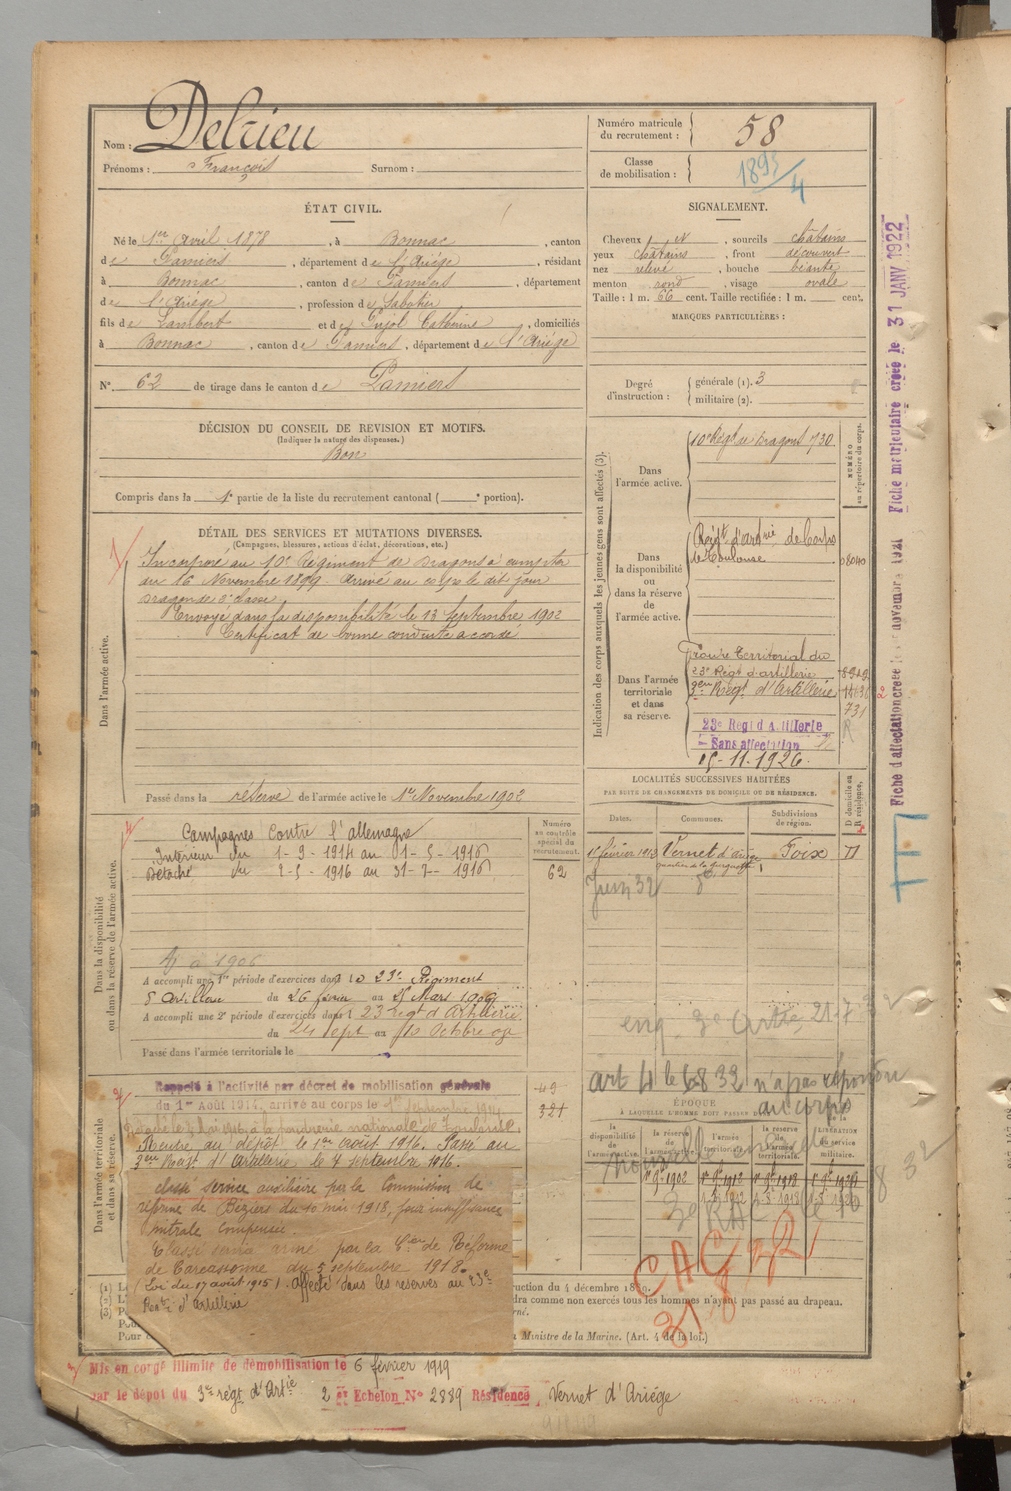 Nom : Delrieu
Prénoms : François Surnom :
Numéro matricule du recrutement : 58
Classe de mobilisation : 1895/4
ÉTAT CIVIL.
Né le 1er Avril 1878, à Bonnac, canton
de Pamiers, département de l'Ariège, résidant
à Bonnac, canton de Pamiers, département
de l'Ariège, profession de Sabotier
fils de Lambert et de Pujol Catherine, domiciliés
à Bonnac, canton de Pamiers, département de l'Ariège
N° 62 de tirage dans le canton de Pamiers
SIGNALEMENT.
Cheveux et, sourcils châtains
yeux châtains, front découvert
nez relevé, bouche béante
menton rond, visage ovale
Taille : 1 m. 66 cent. Taille rectifiée : 1 m. cent.
MARQUES PARTICULIÈRES :
Degré d'instruction : générale (1). 3
militaire (2).
DÉCISION DU CONSEIL DE REVISION ET MOTIFS.
(Indiquer la nature des dispenses.)
Bon
Compris dans la 1e partie de la liste du recrutement cantonal ( e portion).
DÉTAIL DES SERVICES ET MUTATIONS DIVERSES.
(Campagnes, blessures, actions d'éclat, décorations, etc.)
Dans l'armée active.
Incorporé au 10e Régiment de Dragons à compter
du 16 Novembre 1899. Arrivé au corps le dit jour
Dragon de 2e classe
Envoyé dans la disponibilité le 13 Septembre 1902
Certificat de bonne conduite accordé
Passé dans la réserve de l'armée active le 1er Novembre 1902
Indication des corps auxquels les jeunes gens sont affectés (3).
NUMÉRO au répertoire du corps.
Dans l'armée active.
10e Régt de Dragons 730
Dans la disponibilité ou dans la réserve de l'armée active.
Régt d'artrie de Corps
de Toulouse
Dans l'armée territoriale et dans sa réserve.
Territorial du
23e Régt d'artillerie
3eme Régt d'Artillerie
731
23e Régt d'Artillerie
Sans affectation
15-11-1926.
LOCALITÉS SUCCESSIVES HABITÉES
PAR SUITE DE CHANGEMENTS DE DOMICILE OU DE RÉSIDENCE.
D domicile ou R résidence.
Dates. Communes. Subdivisions de région.
février 1913 Vernet d'Ariège Foix D
Dans la disponibilité ou dans la réserve de l'armée active.
Numéro au contrôle spécial du recrutement.
62
Campagnes contre l'allemagne
Intérieur du 1-9-1914 au 1-5-1916
Détaché du 2-5-1916 au 31-7-1916
A accompli une 1re période d'exercices dans le 23e Régiment
d'Artillerie du 26 février au 25 Mars 1906
A accompli une 2e période d'exercices dans le 23 régt d'Artillerie
du 24 Sept au 10 Octobre 08
Passé dans l'armée territoriale le
eng. 3e Artie 21-7-32
art 4 le 6 8 32 n'a pas répondu
au corps
Dans l'armée territoriale et dans sa réserve.
49
321
Rappelé à l'activité par décret de mobilisation générale
du 1er Août 1914, arrivé au corps le 1er septembre 1914
Détaché le 2 Mai 1916, à la poudrerie nationale de Toulouse.
Rentré au dépôt le 1er août 1916. Passé au
3eme Régt d'Artillerie le 4 septembre 1916.
Classé service auxiliaire par la Commission de
réforme de Béziers du 10 mai 1918, pour insuffisance
mitrale compensée.
Classé service armé par la Con de Réforme
de Carcassonne du 5 septembre 1918.
(Loi du 17 août 1915). Affecté dans les réserves au 23e
Régt d'Artillerie
ÉPOQUE
À LAQUELLE L'HOMME DOIT PASSER DANS
la disponibilité de l'armée active.
la réserve de l'armée active.
l'armée territoriale.
la réserve de l'armée territoriale.
LIBÉRATION du service militaire.
ruction du 4 décembre 1889.
dra comme non exercés tous les hommes n'ayant pas passé au drapeau.
Ministre de la Marine. (Art. 4 de la loi.)
Mis en congé illimité de démobilisation le 6 février 1919
par le dépôt du 3e régt d'Artie 2 et Echelon N° 2889 Résidence, Vernet d'Ariège
Fiche matriculaire créée le 31 JANV 1922
Fiche d'affectation créée le novembre 1921